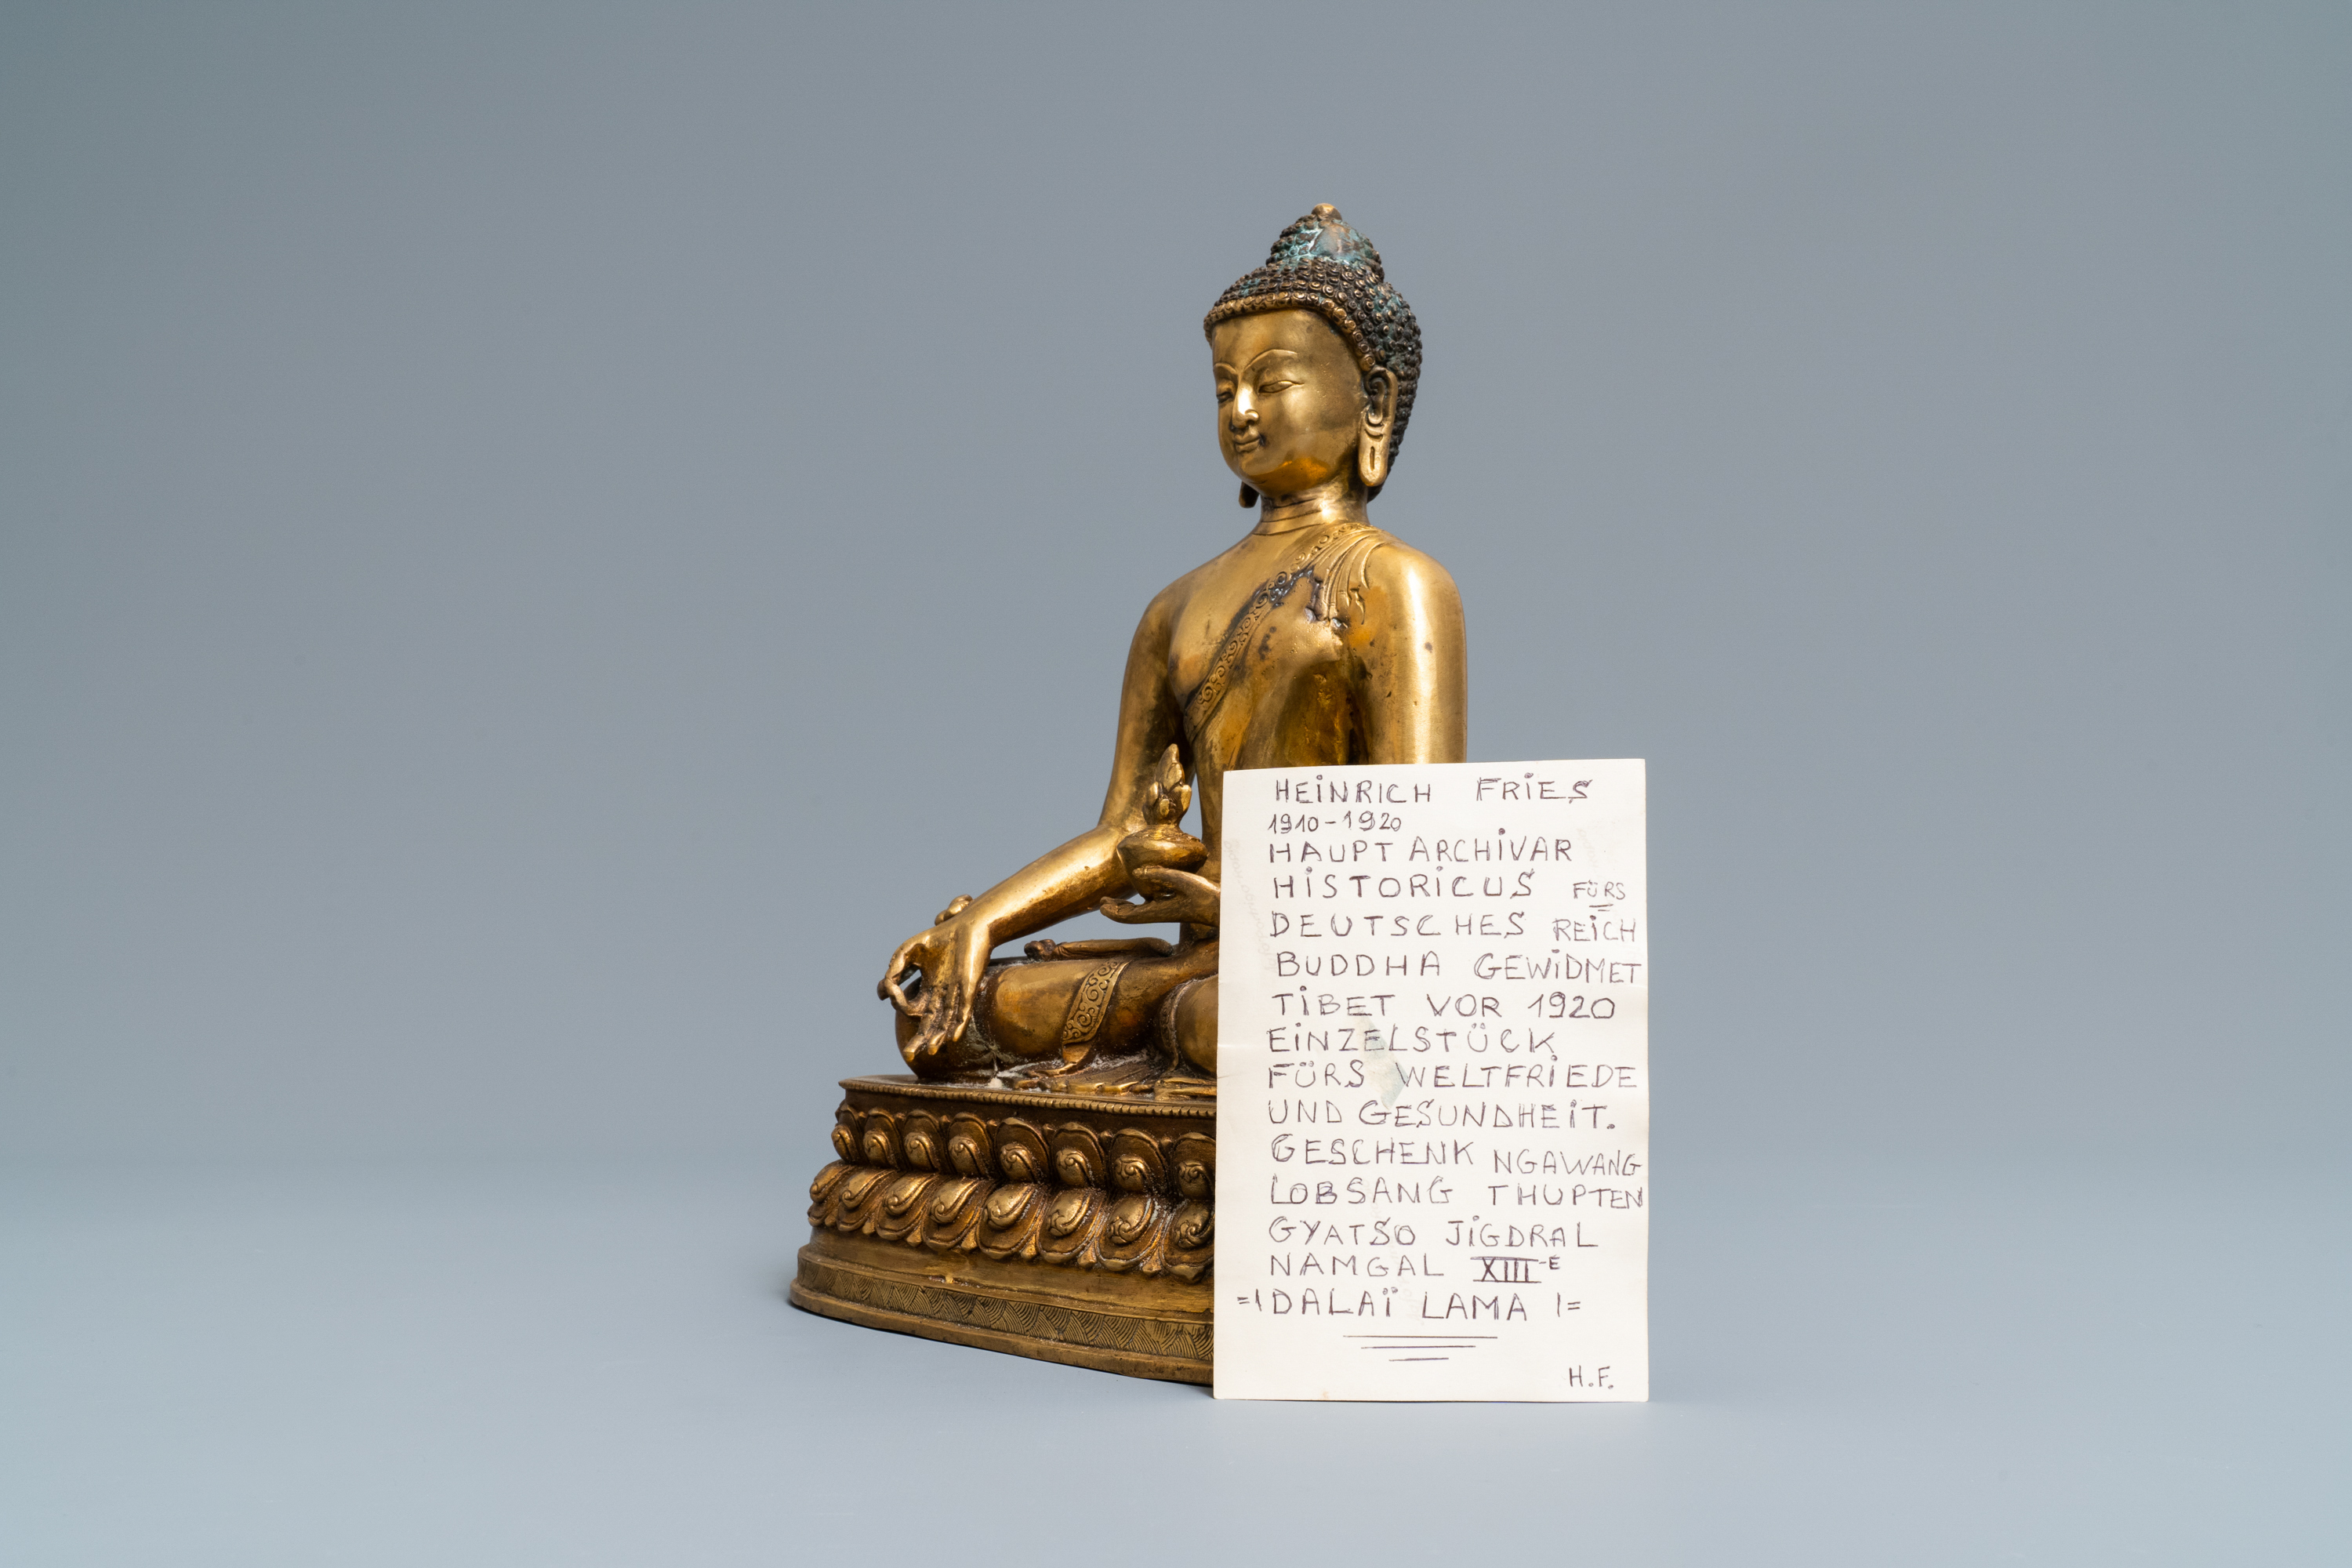 HEINRICH FRIES
1910-1920
HAUPT ARCHIVAR
HISTORICUS FÜRS
DEUTSCHES REICH
BUDDHA GEWIDMET
TIBET VOR 1920
EINZELSTÜCK
FÜRS WELTFRIEDE
UND GESUNDHEIT.
GESCHENK NGAWANG
LOBSANG THUPTEN
GYATSO JIGDRAL
NAMGAL XIII-E
=1DALAÏ LAMA 1=
H.F.